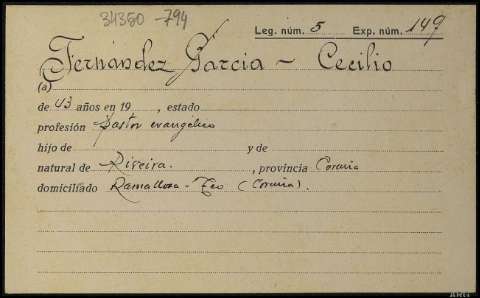 34350-794
Leg. núm. 5 Exp. núm. 149
Fernández García - Cecilio
(a)
de 43 años en 19 , estado
profesión Pastor evangélico
hijo de y de
natural de Riveira. , provincia Coruña
domiciliado Ramallosa - Teo (Coruña).